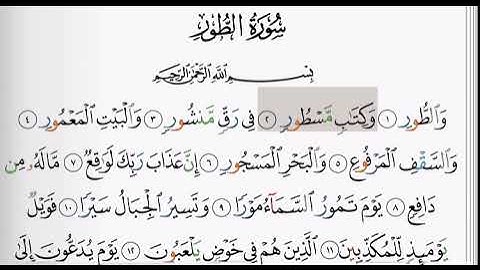 سُورَةُ الطُّورِ
بِسْمِ اللَّهِ الرَّحْمَٰنِ الرَّحِيمِ
وَالطُّورِ ١ وَكِتَابٍ مَّسْطُورٍ ٢ فِي رَقٍّ مَّنشُورٍ ٣ وَالْبَيْتِ الْمَعْمُورِ ٤
وَالسَّقْفِ الْمَرْفُوعِ ٥ وَالْبَحْرِ الْمَسْجُورِ ٦ إِنَّ عَذَابَ رَبِّكَ لَوَاقِعٌ ٧ مَّا لَهُ مِن
دَافِعٍ ٨ يَوْمَ تَمُورُ السَّمَاءُ مَوْرًا ٩ وَتَسِيرُ الْجِبَالُ سَيْرًا ١٠ فَوَيْلٌ
يَوْمَئِذٍ لِّلْمُكَذِّبِينَ ١١ الَّذِينَ هُمْ فِي خَوْضٍ يَلْعَبُونَ ١٢ يَوْمَ يُدَعُّونَ إِلَىٰ